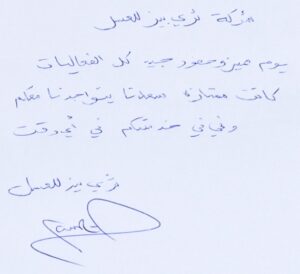 شركة ثري بيز للعسل
يوم مميز وحضور جيد كل الفعاليات
كانت ممتازه سعدنا بتواجدنا معكم
وفي خدمتكم في أي وقت
ثري بيز للعسل